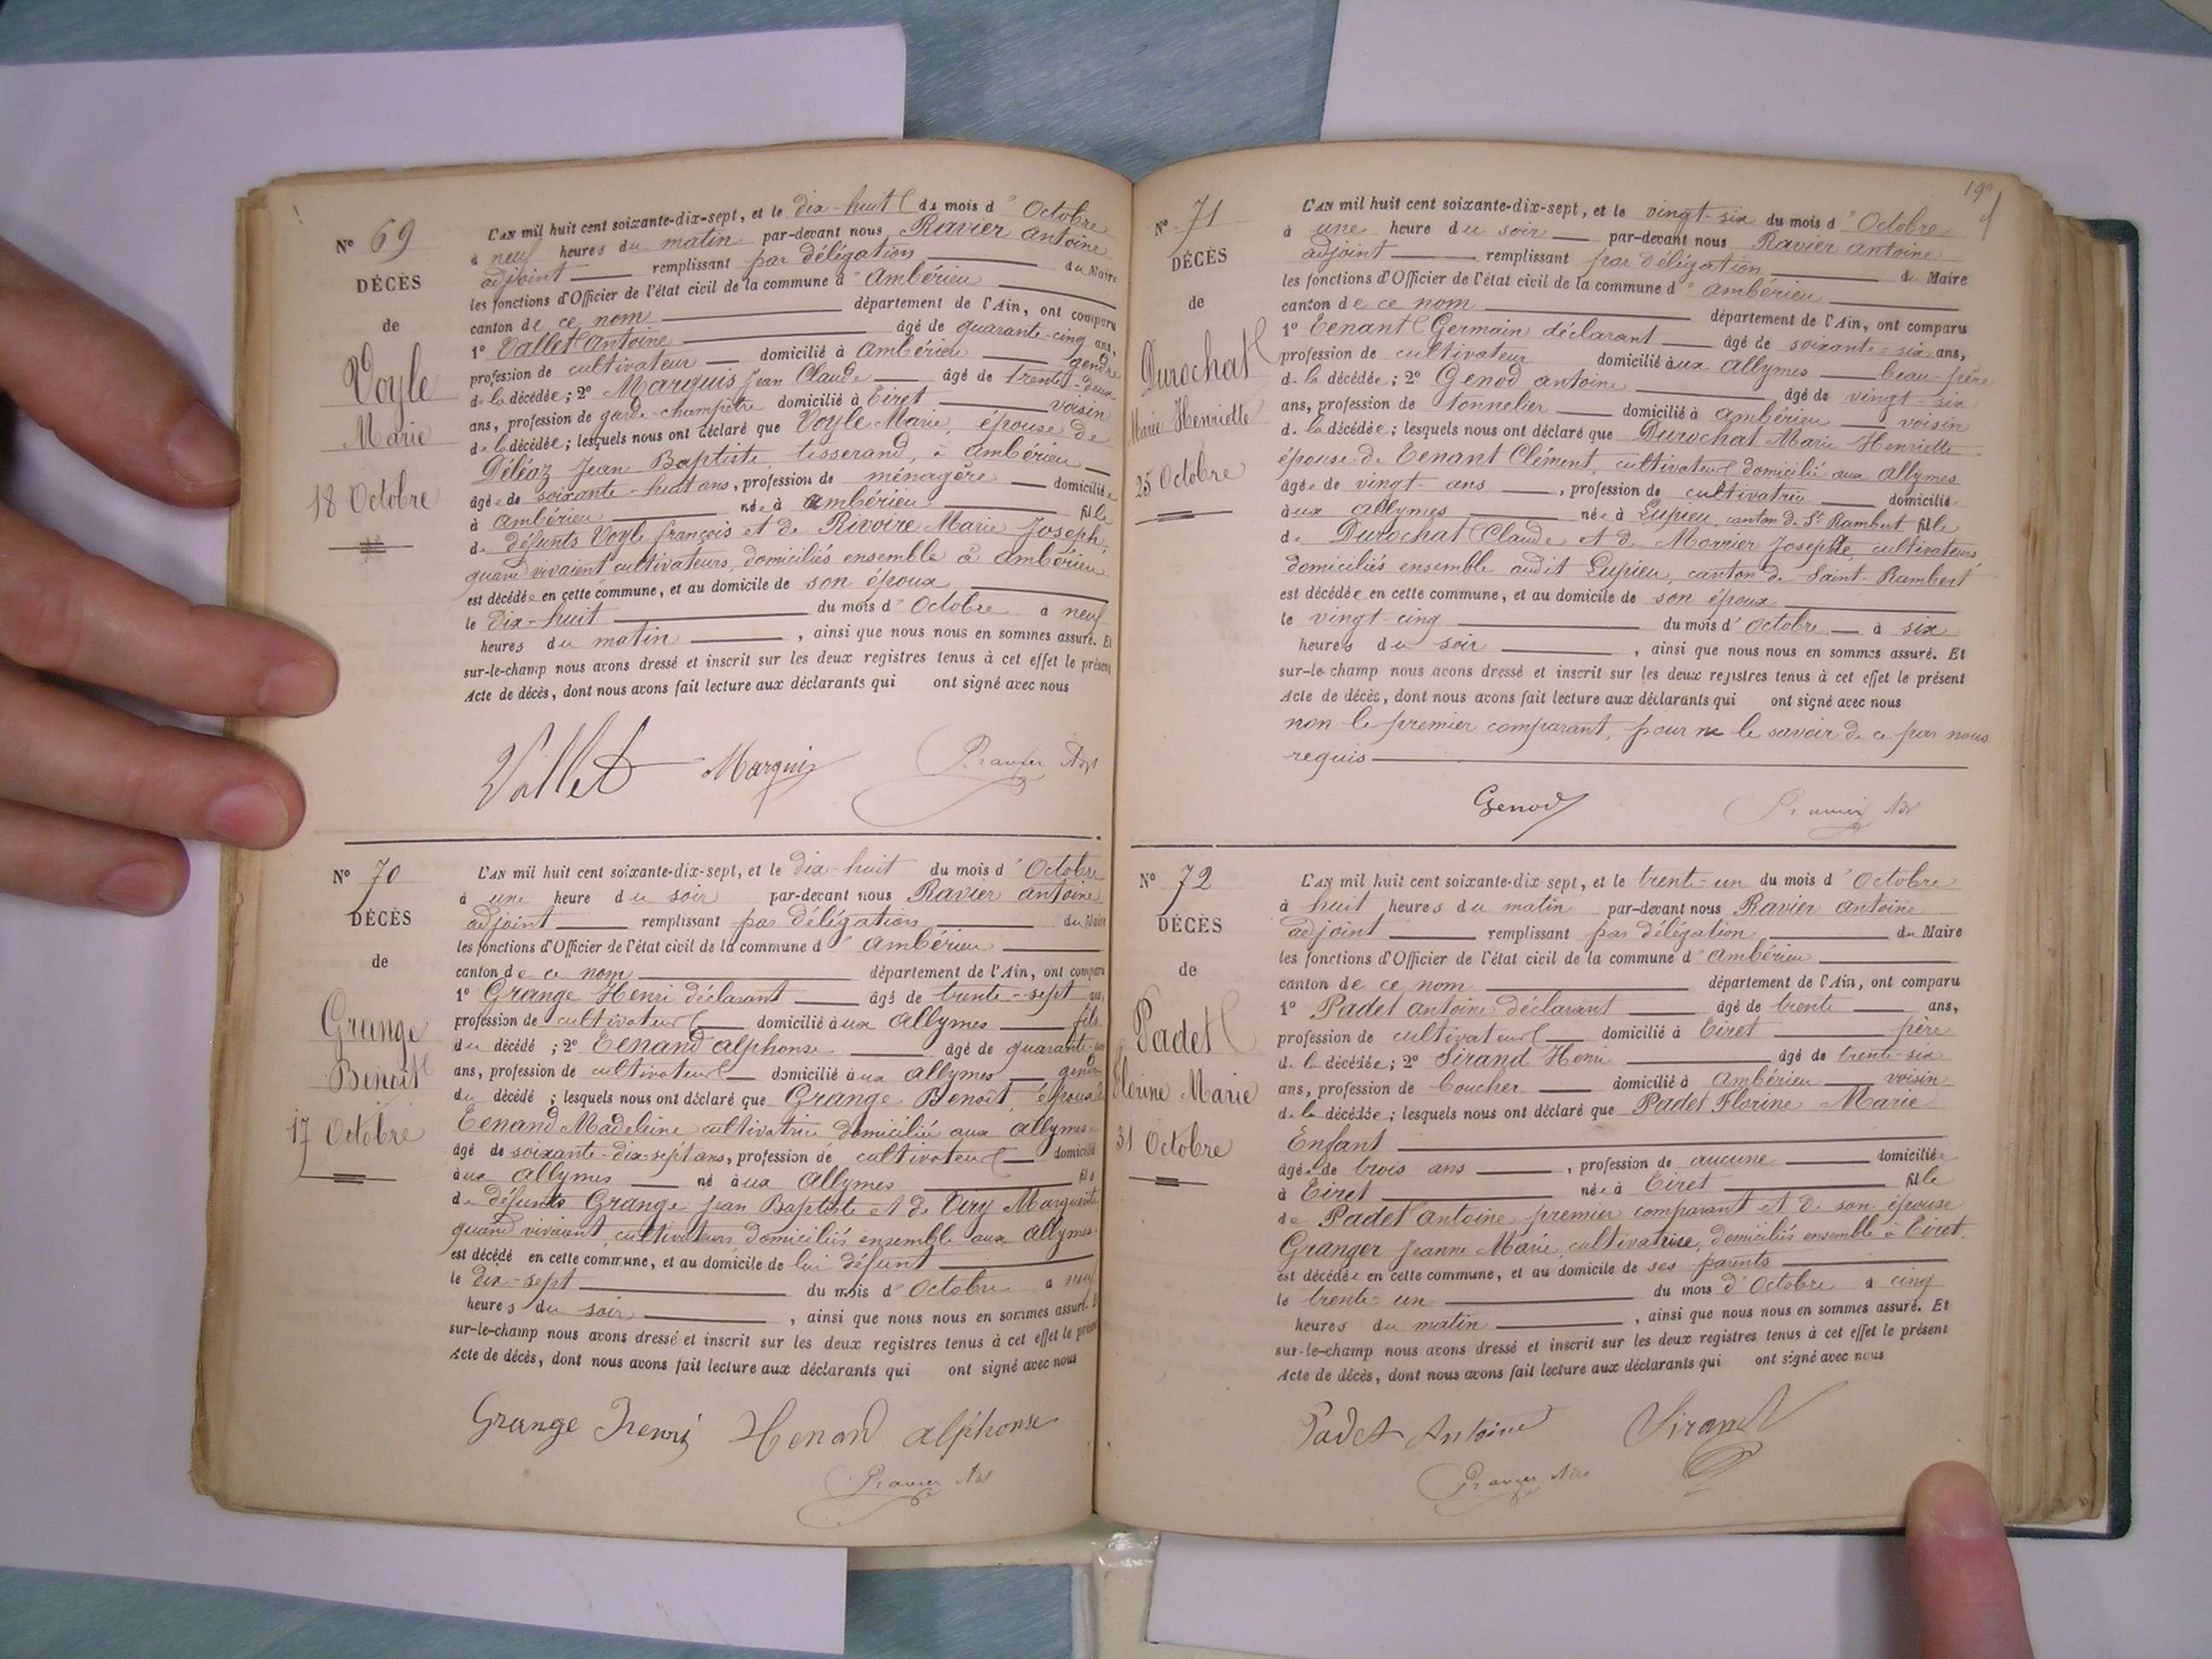 N° 69
DÉCÈS
de
Voyle
Marie
18 Octobre
L'AN mil huit cent soixante-dix-sept, et le dix-huit du mois d'Octobre
à neuf heures du matin par-devant nous Ravier antoine
adjoint remplissant par délégation du Maire
les fonctions d'Officier de l'état civil de la commune d'Ambérieu
canton de ce nom département de l'Ain, ont comparu
1° Vallet Antoine âgé de quarante-cinq ans,
profession de cultivateur domicilié à Ambérieu gendre
de la décédée; 2° Marquis Jean Claude âgé de trente-deux
ans, profession de garde-champêtre domicilié à Tiret voisin
de la décédée; lesquels nous ont déclaré que Voyle Marie, épouse de
Déléaz Jean Baptiste, tisserand, à Ambérieu
âgée de soixante-huit ans, profession de ménagère domiciliée
à Ambérieu née à Ambérieu fille
de défunts Voyle françois et de Rivoire Marie Joseph,
quand vivaient cultivateurs, domiciliés ensemble à Ambérieu
est décédée en cette commune, et au domicile de son époux
le dix-huit du mois d'Octobre à neuf
heures du matin, ainsi que nous nous en sommes assuré. Et
sur-le-champ nous avons dressé et inscrit sur les deux registres tenus à cet effet le présent
Acte de décès, dont nous avons fait lecture aux déclarants qui ont signé avec nous
Vallet Marquis Ravier Adj
N° 70
DÉCÈS
de
Grange
Benoît
17 Octobre
L'AN mil huit cent soixante-dix-sept, et le dix-huit du mois d'Octobre
à une heure du soir par-devant nous Ravier antoine
adjoint remplissant par délégation du Maire
les fonctions d'Officier de l'état civil de la commune d'Ambérieu
canton de ce nom département de l'Ain, ont comparu
1° Grange Henri déclarant âgé de trente-sept ans,
profession de cultivateur domicilié aux Allymes fils
du décédé; 2° Tenand alphonse âgé de quarante
ans, profession de cultivateur domicilié aux Allymes gendre
du décédé; lesquels nous ont déclaré que Grange Benoît, époux de
Tenand Madeleine cultivatrice domiciliée aux Allymes
âgé de soixante-dix-sept ans, profession de cultivateur domicilié
aux Allymes né aux Allymes fils
de défunts Grange Jean Baptiste et de Viry Marguerite
quand vivaient, cultivateurs domiciliés ensemble aux Allymes
est décédé en cette commune, et au domicile de lui défunt
le dix-sept du mois d'Octobre à neuf
heures du soir, ainsi que nous nous en sommes assuré. Et
sur-le-champ nous avons dressé et inscrit sur les deux registres tenus à cet effet le présent
Acte de décès, dont nous avons fait lecture aux déclarants qui ont signé avec nous
Grange Henri Tenand alphonse
Ravier Adj
N° 71
DÉCÈS
de
Durochat
Marie Henriette
25 Octobre
L'AN mil huit cent soixante-dix-sept, et le vingt-six du mois d'Octobre
à une heure du soir par-devant nous Ravier antoine
adjoint remplissant par délégation du Maire
les fonctions d'Officier de l'état civil de la commune d'ambérieu
canton de ce nom département de l'Ain, ont comparu
1° Tenant Germain déclarant âgé de soixante-six ans,
profession de cultivateur domicilié aux Allymes beau-père
de la décédée; 2° Genod antoine âgé de vingt-six
ans, profession de tonnelier domicilié à Ambérieu voisin
de la décédée; lesquels nous ont déclaré que Durochat Marie Henriette
épouse de Tenant Clément, cultivateur domicilié aux Allymes
âgée de vingt ans, profession de cultivatrice domiciliée
aux Allymes née à Lupieu, canton de St Rambert fille
de Durochat Claude et de Morrier Josephte, cultivateurs
domiciliés ensemble audit Lupieu, canton de Saint-Rambert
est décédée en cette commune, et au domicile de son époux
le vingt-cinq du mois d'Octobre à six
heures du soir, ainsi que nous nous en sommes assuré. Et
sur-le-champ nous avons dressé et inscrit sur les deux registres tenus à cet effet le présent
Acte de décès, dont nous avons fait lecture aux déclarants qui ont signé avec nous
non le premier comparant, pour ne le savoir de ce par nous
requis
Genod Ravier Adj
N° 72
DÉCÈS
de
Padet
Florine Marie
31 Octobre
L'AN mil huit cent soixante-dix-sept, et le trente-un du mois d'Octobre
à huit heures du matin par-devant nous Ravier antoine
adjoint remplissant par délégation du Maire
les fonctions d'Officier de l'état civil de la commune d'Ambérieu
canton de ce nom département de l'Ain, ont comparu
1° Padet antoine déclarant âgé de trente ans,
profession de cultivateur domicilié à Tiret père
de la décédée; 2° Sirand Henri âgé de trente-six
ans, profession de boucher domicilié à Ambérieu voisin
de la décédée; lesquels nous ont déclaré que Padet Florine Marie
Enfant
âgée de trois ans, profession de aucune domiciliée
à Tiret née à Tiret fille
de Padet Antoine premier comparant et de son épouse
Granger Jeanne Marie, cultivatrice, domiciliés ensemble à Tiret.
est décédée en cette commune, et au domicile de ses parents
le trente-un du mois d'Octobre à cinq
heures du matin, ainsi que nous nous en sommes assuré. Et
sur-le-champ nous avons dressé et inscrit sur les deux registres tenus à cet effet le présent
Acte de décès, dont nous avons fait lecture aux déclarants qui ont signé avec nous
Padet Antoine Sirand
Ravier Adj